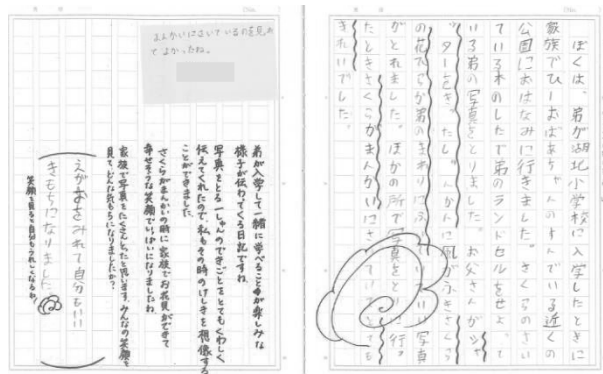 ぼくは、弟が湖北小学校に入学したときに
家族でひーおばあちゃんのすんでいる近くの
公園におはなみに行きました。さくらのさい
ている木のしたで弟のランドセルをせよって
いる弟の写真をとりました。お父さんがシャ
ッターをき
たしゅんかんに風がふきさくら
の花びらが弟のまわりにふ
いい写真
がとれました。ほかの所で写真をとりに行っ
たときさくらがまんかいにさいていてとても
きれいでした。
まんかいにさいているのを見れ
てよかったね。
弟が入学して一緒に学べることが楽しみな
様子が伝わってくる日記ですね。
写真をとる一しゅんのできごとをとてもくわしく
伝えてくれたので、私もその時のけしきを想像する
ことができました。
さくらがまんかいの時に家族でお花見ができて
幸せそうな笑顔でいっぱいになりましたね。
家族で写真をたくさんとったと思います。みんなの笑顔を
見て、どんな気もちになりましたか？
えがおをみれて自分もいい
きもちになりました。
笑顔を見ると自分もうれしくなるね。